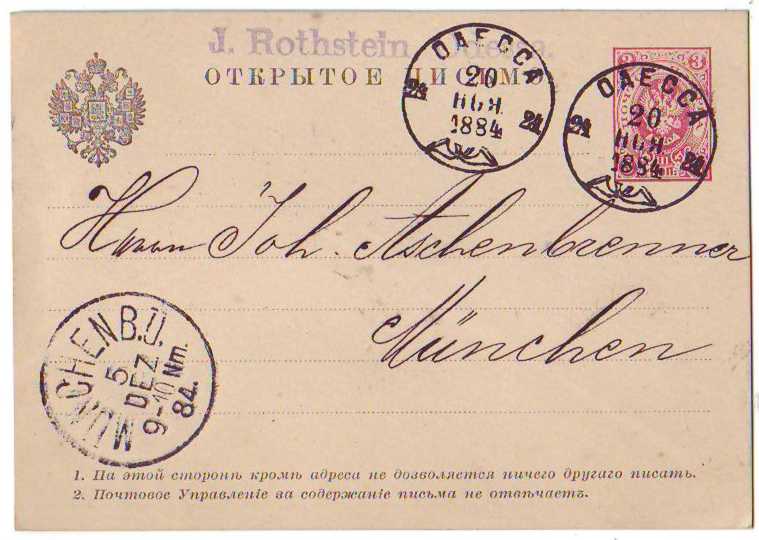 J. Rothstein, Odessa.
ОТКРЫТОЕ ПИСЬМО
ОДЕССА
20
НОЯ
1884
21 21
ОДЕССА
20
НОЯ
1884
21 21
3 3
Herrn Joh. Aschenbrenner
München
MÜNCHEN B.Ü.
5
DEZ
9-10 Nm.
84.
1. На этой сторонѣ кромѣ адреса не дозволяется ничего другаго писать.
2. Почтовое Управленіе за содержаніе письма не отвѣчаетъ.